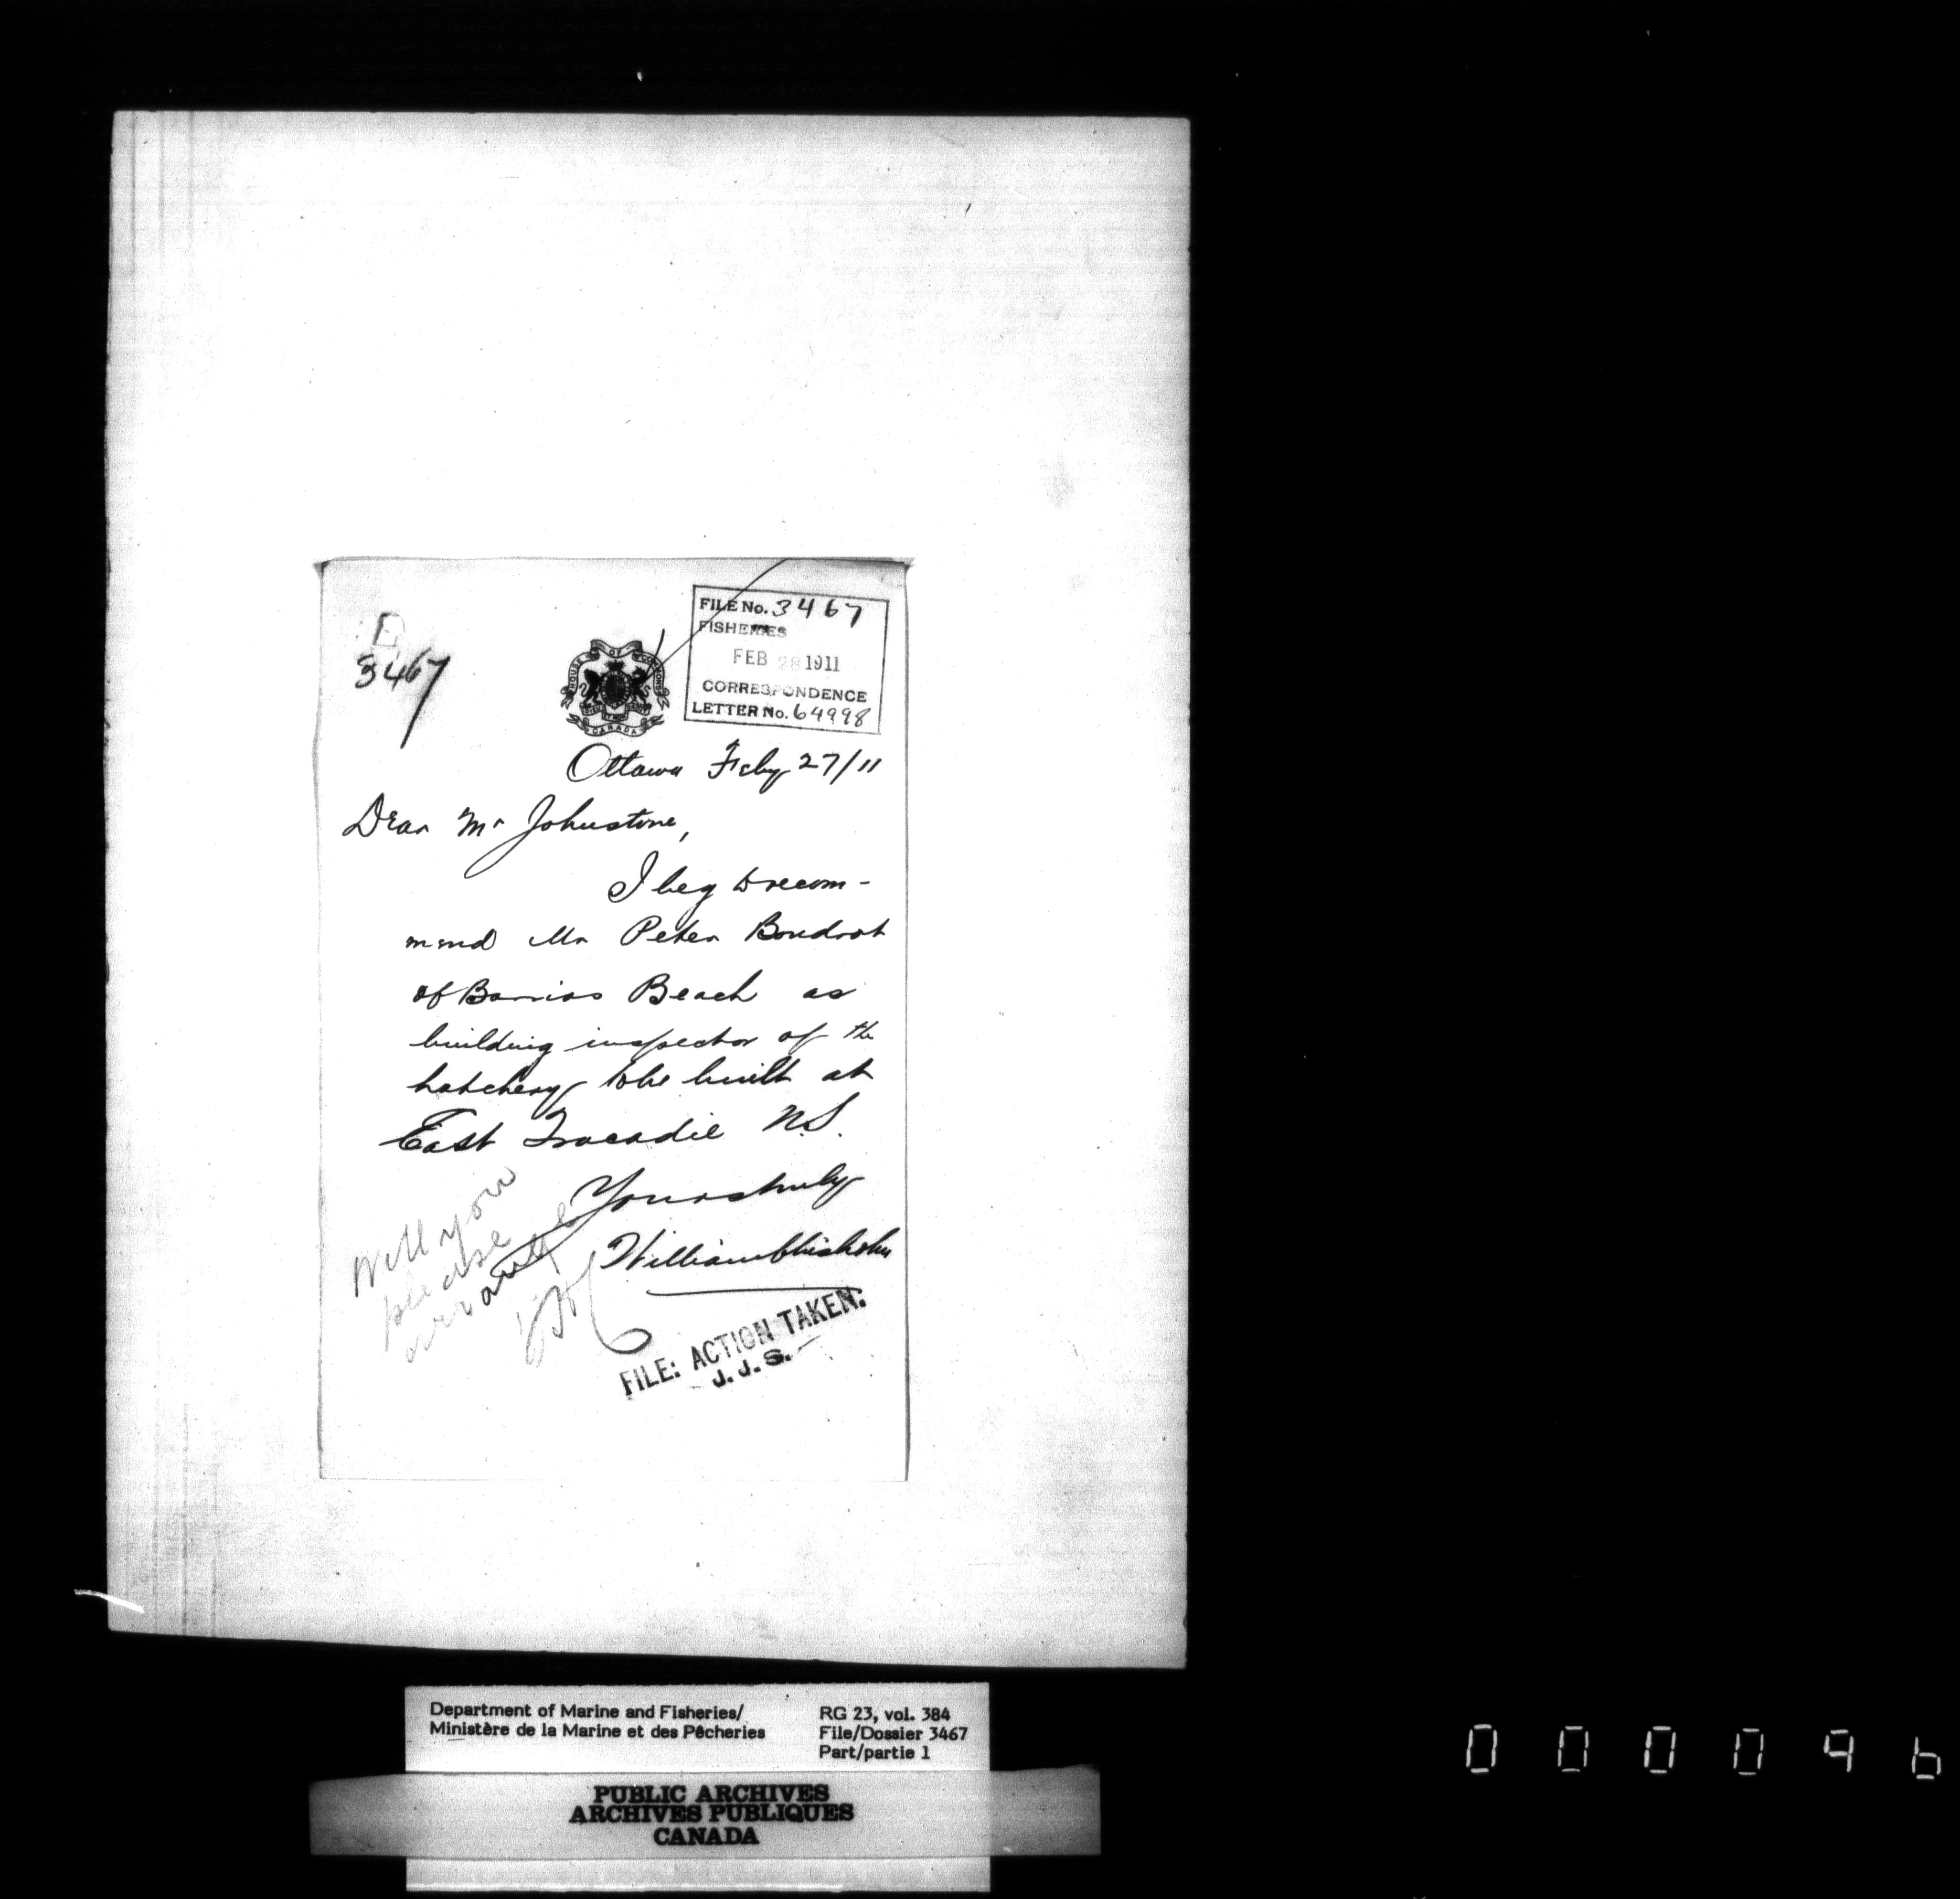 E
3467
HOUSE OF COMMONS
CANADA
FILE No. 3467
FISHERIES
FEB 28 1911
CORRESPONDENCE
LETTER No. 64998
Ottawa Feby 27/11
Dear Mr Johnstone,
I beg to recom-
mend Mr Peter Boudrot
of Barrios Beach as
building inspector of the
hatchery to be built at
East Tracadie N.S.
Yours truly
William Chisholm
Will you
please
arrange
FILE: ACTION TAKEN.
J. J. S.
Department of Marine and Fisheries/
Ministère de la Marine et des Pêcheries
RG 23, vol. 384
File/Dossier 3467
Part/partie 1
PUBLIC ARCHIVES
ARCHIVES PUBLIQUES
CANADA
000096